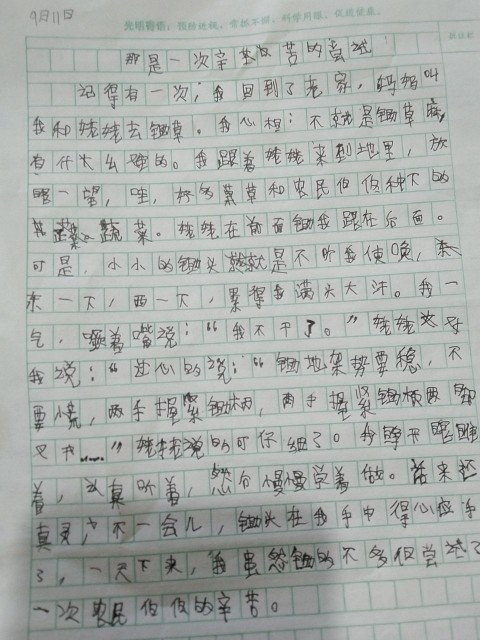 9月11日
光明物语：预防近视，常抓不懈，科学用眼，促进健康。
那是一次辛苦的尝试
记得有一次，我回到了老家，妈妈叫
我和姥姥去锄草。我心想：不就是锄草嘛，
有什么难的。我跟着姥姥来到地里，放
眼一望，哇，好多菜草和农民伯伯种下的
蔬菜。姥姥在前面锄我跟在后面。
可是，小小的锄头就是不听我使唤，
东一下，西一下，累得我满头大汗。我一
气，噘着嘴说：“我不干了。”姥姥这是
我说：“过心的说：“锄地架势要稳，不
要慌，两手握紧锄柄，两手握紧锄柄两眼
又开……”姥姥说的可仔细了。我睁开眼睛
着，认真听着，然后慢慢学着做。后来还
真灵，不一会儿，锄头在我手中得心应手
了，一天下来，我虽然锄的不多但尝试了
一次农民伯伯的辛苦。